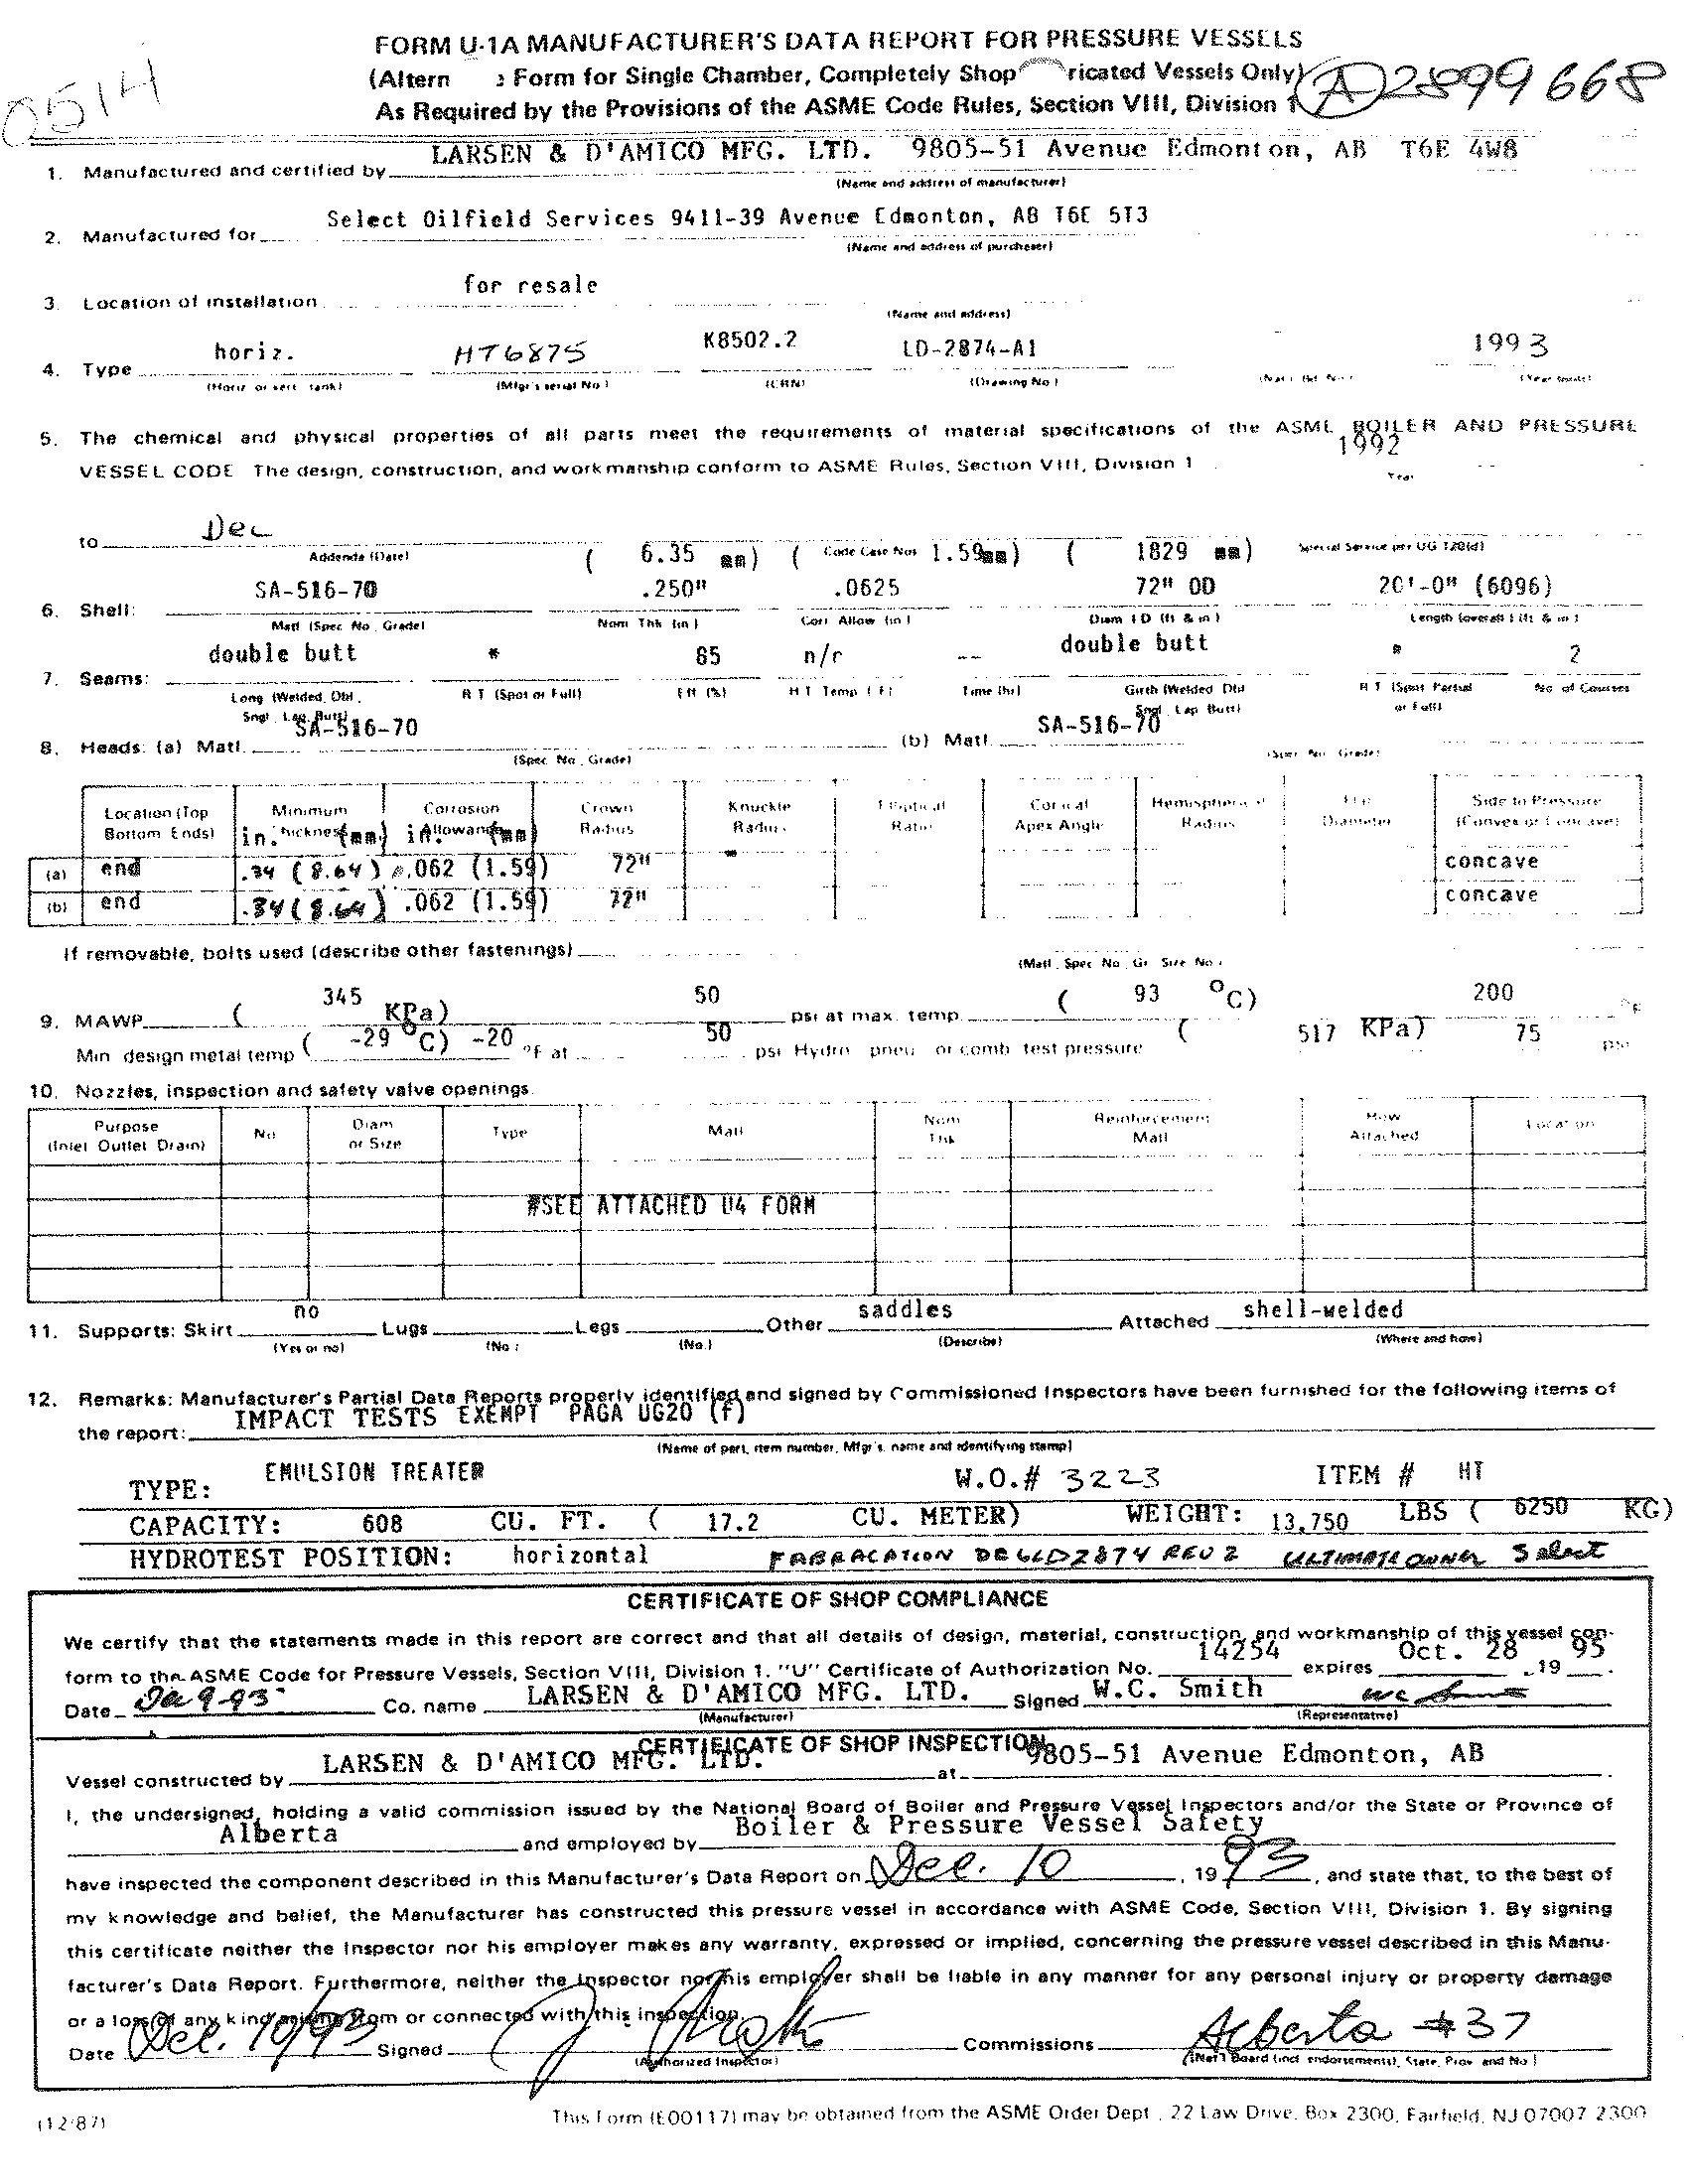 FORM U-1A MANUFACTURER'S DATA REPORT FOR PRESSURE VESSELS
(Altern Form for Single Chamber, Completely Shop ricated Vessels Only)
0514
A 2899668
As Required by the Provisions of the ASME Code Rules, Section VIII, Division 1
LARSEN & D'AMICO MFG. LTD. 9805-51 Avenue Edmonton, AB T6E 4W8
1. Manufactured and certified by
(Name and address of manufacturer)
Select Oilfield Services 9411-39 Avenue Edmonton, AB T6E 5T3
2. Manufactured for
(Name and address of purchaser)
for resale
3. Location of installation
(Name and address)
horiz. HT6875 K8502.2 LD-2874-A1 1993
4. Type
(Horiz or vert tank) (Mfgr's serial No) (CRN) (Drawing No) (Nat'l Bd No) (Year built)
5. The chemical and physical properties of all parts meet the requirements of material specifications of the ASME BOILER AND PRESSURE
1992
VESSEL CODE The design, construction, and workmanship conform to ASME Rules, Section VIII, Division 1
Year
to Dec
Addenda (Date) ( 6.35 mm) ( Code Case Nos 1.59mm) ( 1829 mm) Special Service per UG 120(d)
SA-516-70 .250" .0625 72" OD 20'-0" (6096)
6. Shell:
Matl (Spec No, Grade) Nom Thk (in) Corr Allow (in) Diam ID (ft & in) Length (overall) (ft & in)
double butt * 85 n/r -- double butt * 2
7. Seams:
Long (Welded, Dbl, R T (Spot or Full) Eff (%) H T Temp (F) Time (hr) Girth (Welded Dbl R T (Spot Partial No of Courses
Sngl, Lap, Butt) Sngl, Lap Butt) or Full)
SA-516-70 SA-516-70
8. Heads: (a) Matl (b) Matl
(Spec No, Grade) (Spec No Grade)
Location (Top Minimum Corrosion Crown Knuckle Elliptical Conical Hemispherical Flat Side to Pressure
Bottom Ends) in. Thickness (mm) in. Allowance (mm) Radius Radius Ratio Apex Angle Radius Diameter (Convex or Concave)
(a) end .34 (8.64) .062 (1.59) 72" concave
(b) end .34 (8.64) .062 (1.59) 72" concave
If removable, bolts used (describe other fastenings)
(Matl Spec No Gr Size No)
345 50 ( 93 °C) 200
9. MAWP ( KPa) psi at max. temp. °F
Min design metal temp ( -29 °C) -20 °F at 50 psi Hydro pneu or comb test pressure ( 517 KPa) 75 psi
10. Nozzles, inspection and safety valve openings.
Purpose No Diam Type Matl Nom Reinforcement How Location
(Inlet Outlet Drain) or Size Thk Matl Attached
#SEE ATTACHED U4 FORM
no saddles shell-welded
11. Supports: Skirt Lugs Legs Other Attached
(Yes or no) (No) (No.) (Describe) (Where and how)
12. Remarks: Manufacturer's Partial Data Reports properly identified and signed by Commissioned Inspectors have been furnished for the following items of
the report: IMPACT TESTS EXEMPT PAGA UG20 (f)
(Name of part, item number, Mfgr's name and identifying stamp)
TYPE: EMULSION TREATER W.O.# 3223 ITEM # HT
CAPACITY: 608 CU. FT. ( 17.2 CU. METER) WEIGHT: 13,750 LBS ( 6250 KG)
HYDROTEST POSITION: horizontal FABRACATION DRG LD2874 REV 2 ULTIMATE OWNER Select
CERTIFICATE OF SHOP COMPLIANCE
We certify that the statements made in this report are correct and that all details of design, material, construction, and workmanship of this vessel con-
14254 Oct. 28 95
form to the ASME Code for Pressure Vessels, Section VIII, Division 1. "U" Certificate of Authorization No. expires 19
Date Dec 9-93 Co. name LARSEN & D'AMICO MFG. LTD. Signed W.C. Smith
(Manufacturer) (Representative)
CERTIFICATE OF SHOP INSPECTION
LARSEN & D'AMICO MFG. LTD. 9805-51 Avenue Edmonton, AB
Vessel constructed by at
I, the undersigned, holding a valid commission issued by the National Board of Boiler and Pressure Vessel Inspectors and/or the State or Province of
Alberta and employed by Boiler & Pressure Vessel Safety
have inspected the component described in this Manufacturer's Data Report on Dec. 10, 1993, and state that, to the best of
my knowledge and belief, the Manufacturer has constructed this pressure vessel in accordance with ASME Code, Section VIII, Division 1. By signing
this certificate neither the Inspector nor his employer makes any warranty, expressed or implied, concerning the pressure vessel described in this Manu-
facturer's Data Report. Furthermore, neither the Inspector nor his employer shall be liable in any manner for any personal injury or property damage
or a loss of any kind arising from or connected with this inspection.
Date Dec. 10/93 Signed Commissions Alberta #37
(Authorized Inspector) (Nat'l Board (incl endorsements), State, Prov and No)
(12/87) This Form (E00117) may be obtained from the ASME Order Dept., 22 Law Drive, Box 2300, Fairfield, NJ 07007 2300